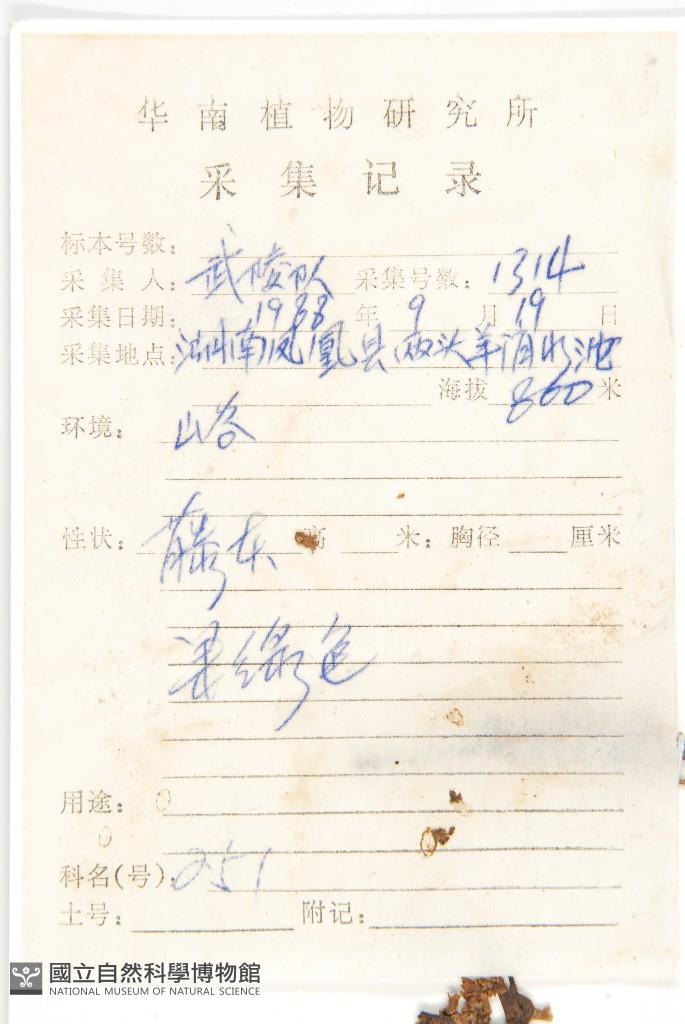 华南植物研究所
采集记录
标本号数：
采集人：武陵队 采集号数：1314
采集日期：1988年9月19日
采集地点：湖南凤凰县两头羊消水池
海拔860米
环境：山谷
性状：藤本 高 米；胸径 厘米
果绿色
用途：
科名(号)：251
土号： 附记：
國立自然科學博物館
NATIONAL MUSEUM OF NATURAL SCIENCE